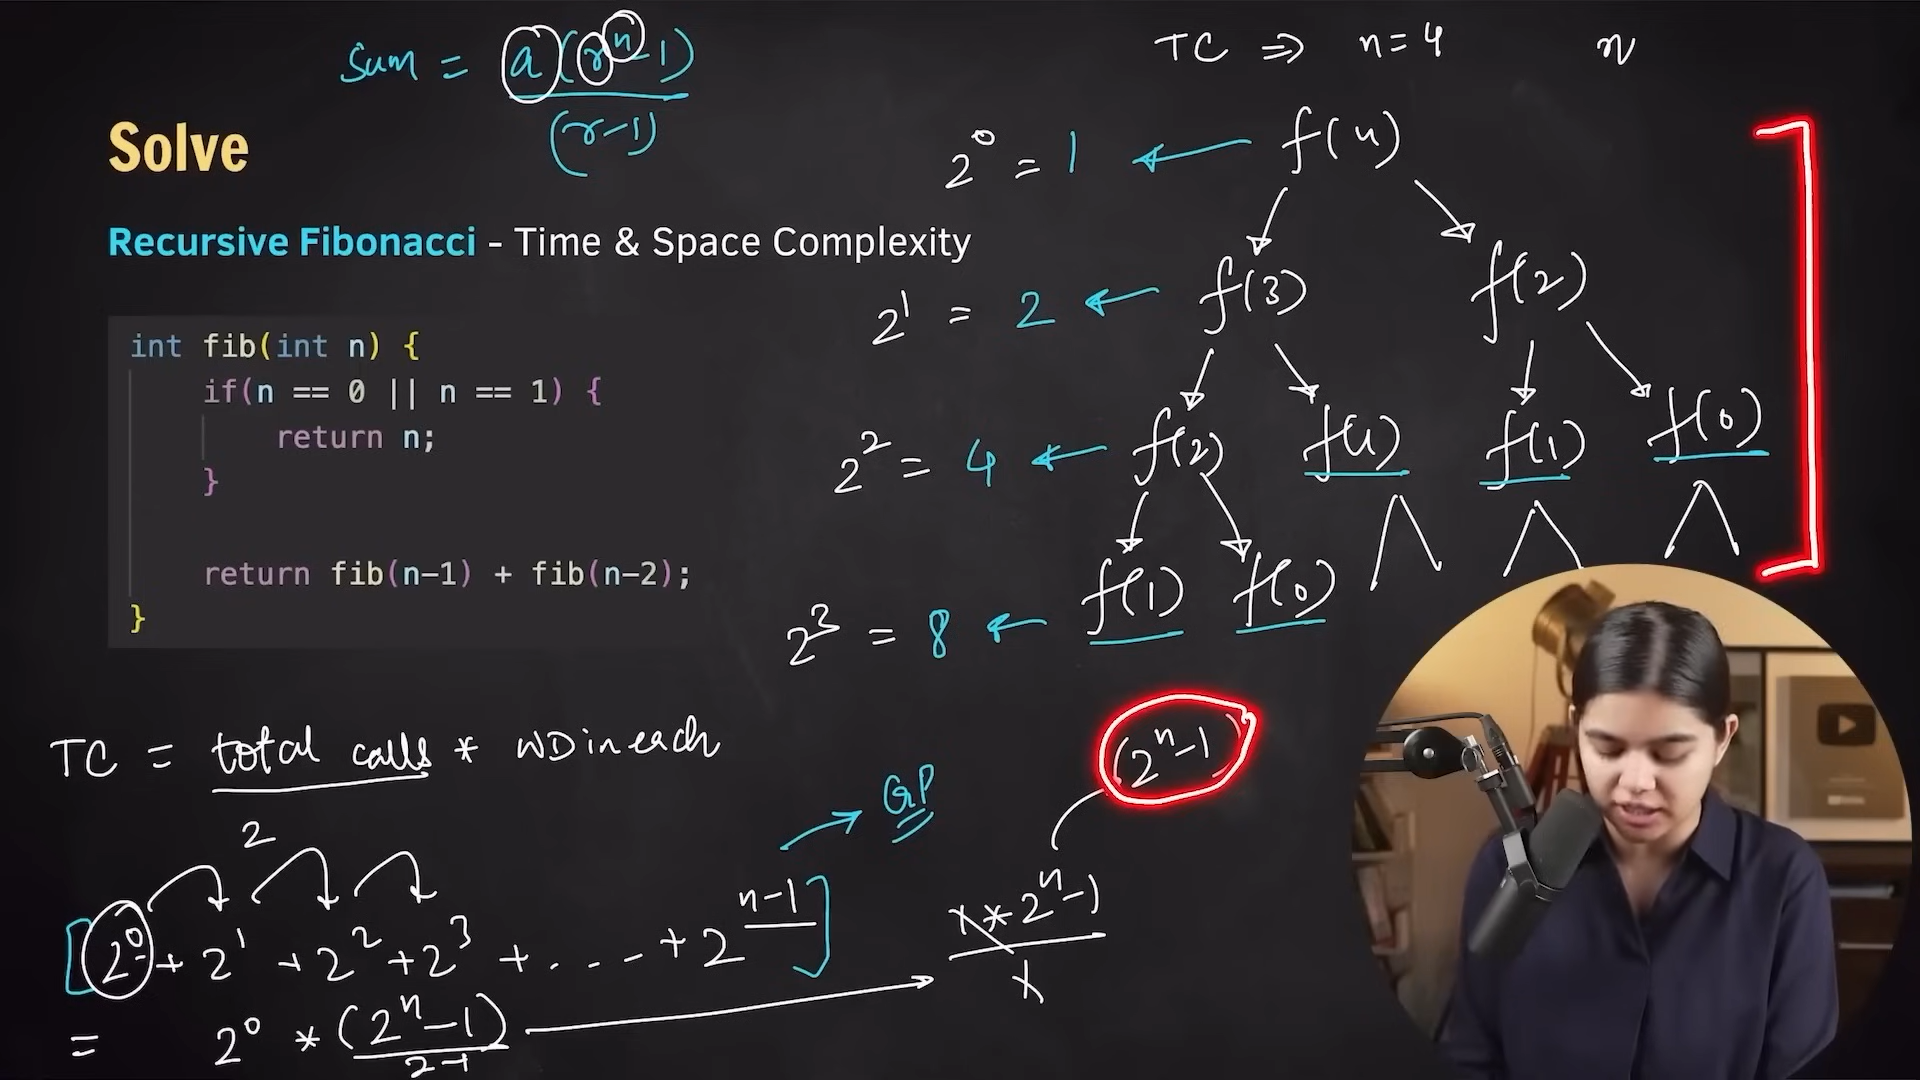 Sum = a(rⁿ-1)
(r-1)
TC ⇒ n=4 n
Solve
Recursive Fibonacci - Time & Space Complexity
int fib(int n) {
if(n == 0 || n == 1) {
return n;
}
return fib(n-1) + fib(n-2);
}
2⁰ = 1 ← f(4)
2¹ = 2 ← f(3) f(2)
2² = 4 ← f(2) f(1) f(1) f(0)
2³ = 8 ← f(1) f(0)
TC = total calls * WD in each
(2ⁿ-1)
→ GP
2
[2⁰ + 2¹ + 2² + 2³ + . . . + 2ⁿ⁻¹]
= 2⁰ * (2ⁿ-1)
2-1
1 * 2ⁿ-1
1